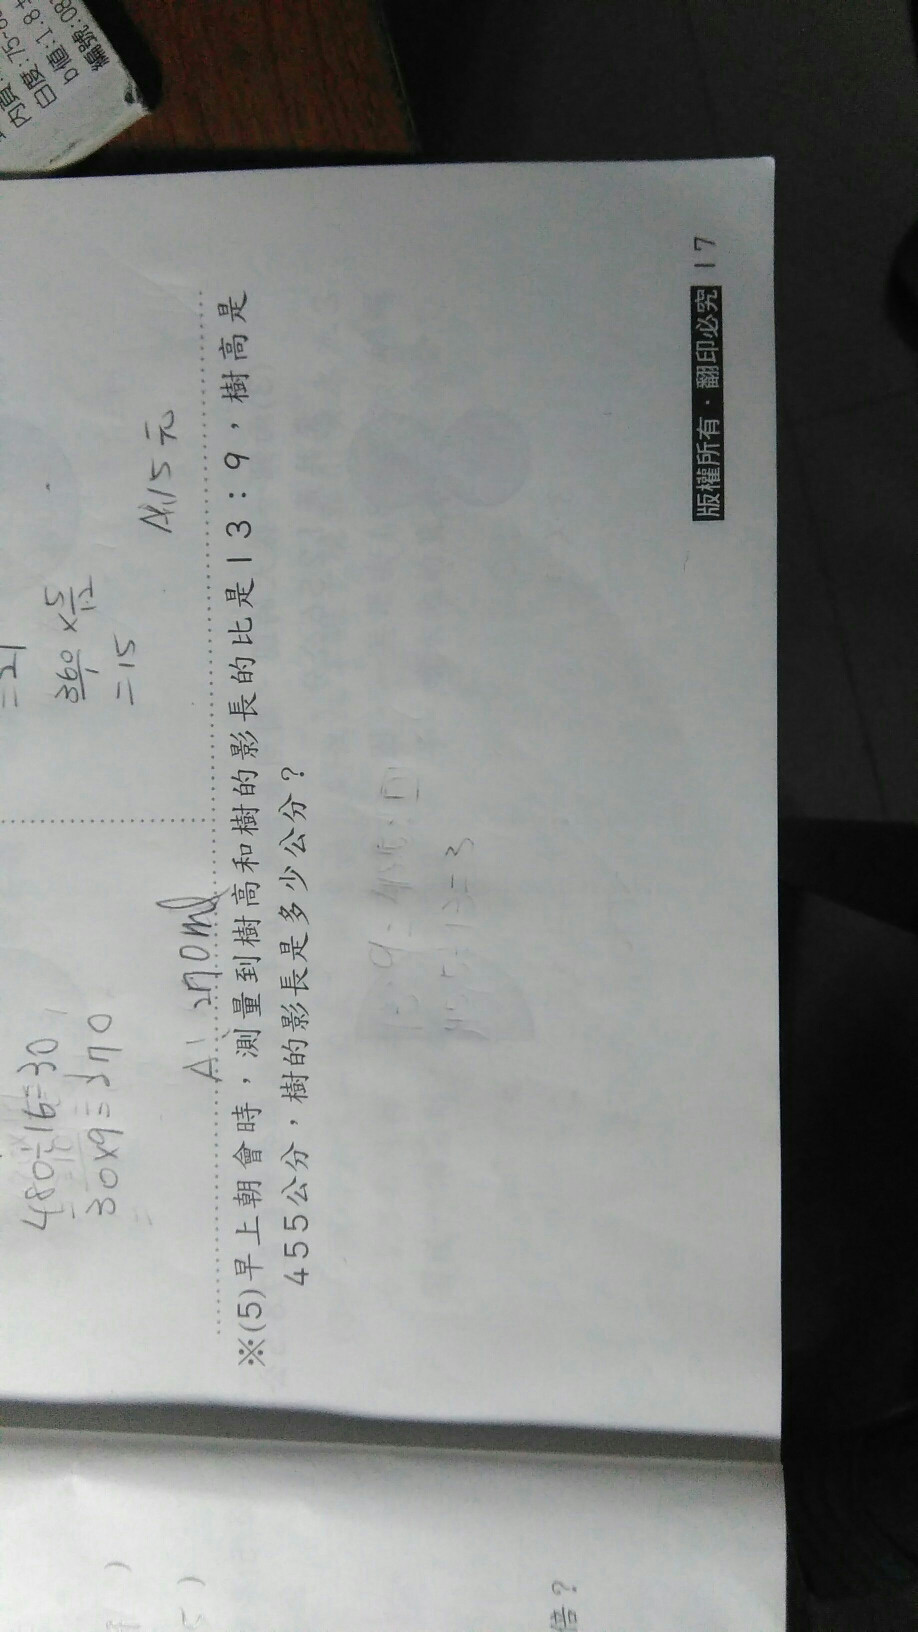 內頁:
白度:75-8
b值:1.8±
編號:08
=21
360/1 × 5/12
=15
A:15元
480÷16=30
30×9=270
A: 270ml
※(5)早上朝會時，測量到樹高和樹的影長的比是13:9，樹高是
455公分，樹的影長是多少公分？
版權所有·翻印必究 17
倍？